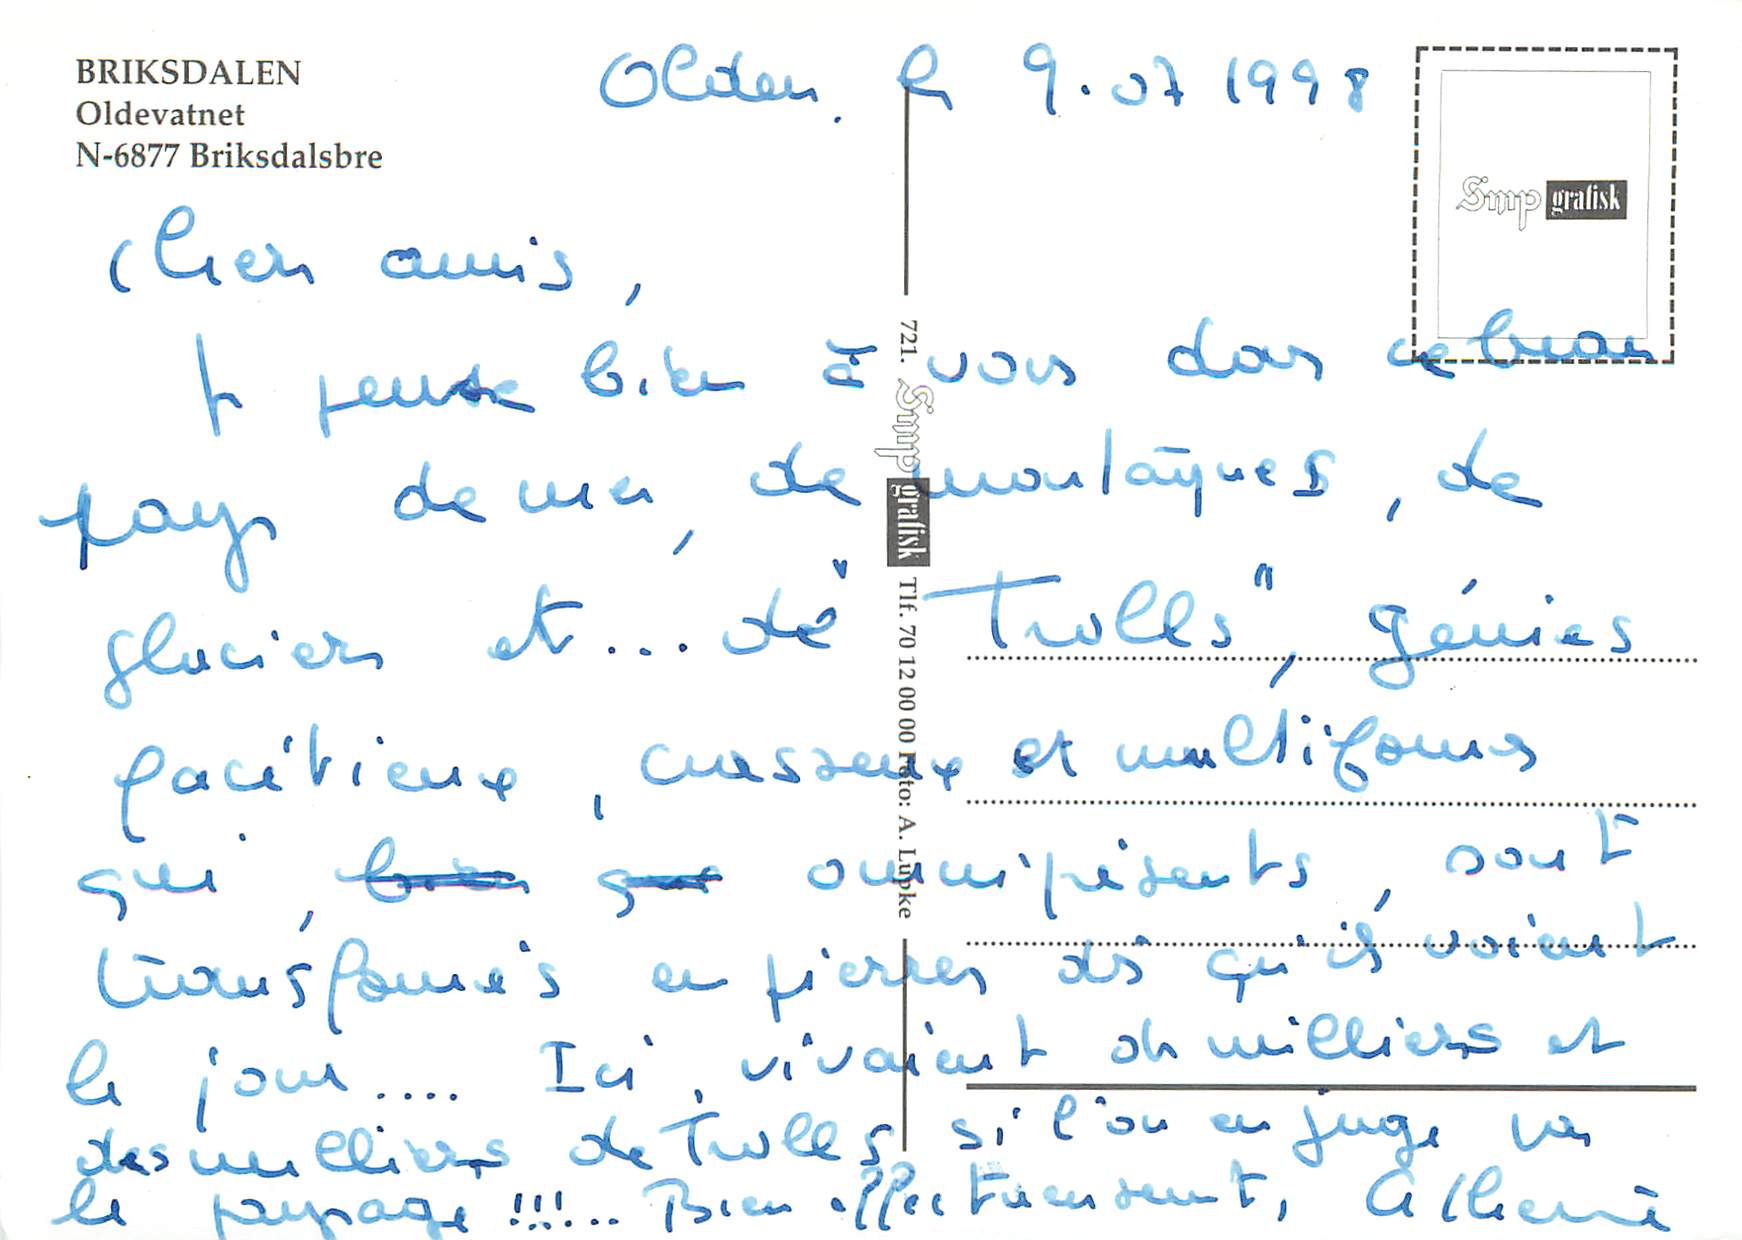 BRIKSDALEN
Oldevatnet
N-6877 Briksdalsbre
Olden, le 9.07 1998
Smp grafisk
Chers amis,
Je pense bien à vous dans ce beau
pays de mer, de montagnes, de
glaciers et... de "Trolls", génies
facétieux, et multiformes
qui, bien que omniprésents, sont
transformés en pierres dès qu'ils voient
le jour.... Ici, vivaient des milliers et
des milliers de Trolls si l'on en juge par
le paysage !!!... Bien affectueusement,
721. Smp grafisk Tlf. 70 12 00 00 Foto: A. Lupke